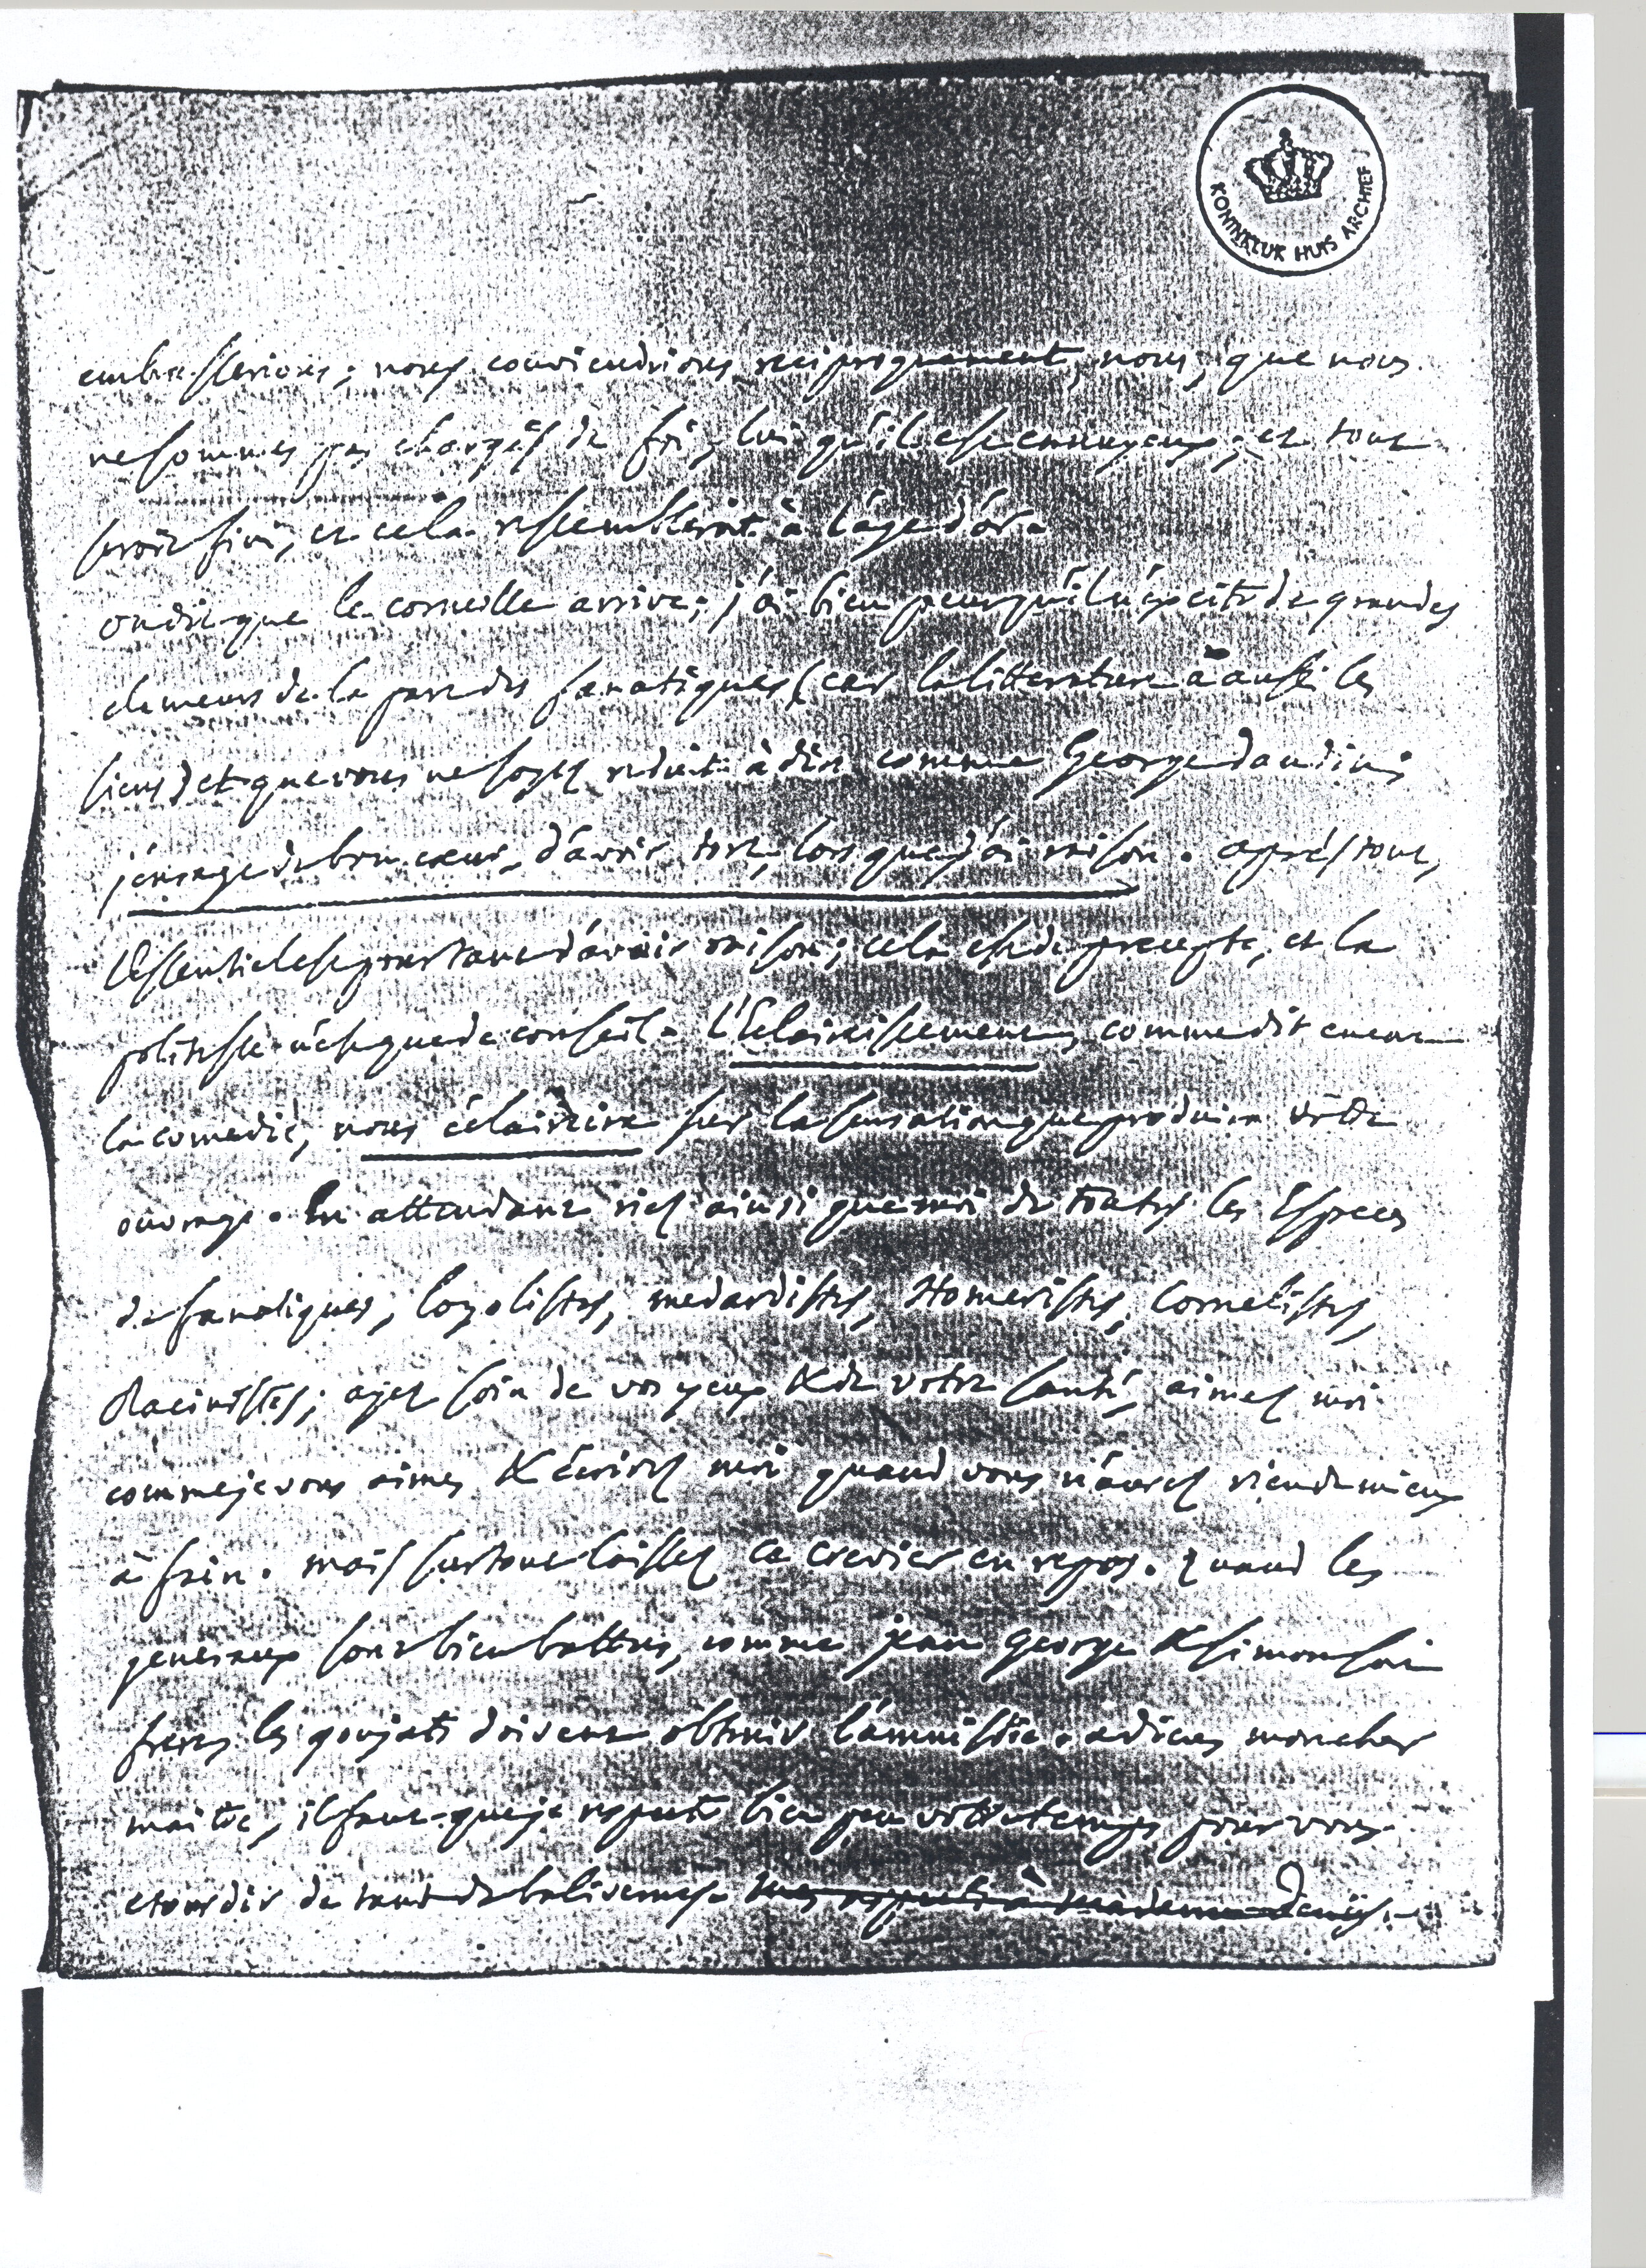 KONINKLIJK HUIS ARCHIEF
embrasserions; nous conviendrions reciproquement, nous, que nous
ne sommes pas chargés de foi, lui qu'il est ennuyeux; et tout
seroit fini, et cela ressembleroit à l'âge d'or.
on dit que le corneille arrive; j'ai bien peur qu'il n'excite de grandes
clameurs de la part des fanatiques (car la litterature a aussi les
siens) et que vous ne soyez reduit à dire comme George dandin;
j'enrage de bon cœur, d'avoir tort, lors que j'ai raison. après tout,
l'Essentiel est pourtant d'avoir raison; cela est de precepte, et la
politesse n'est que de conseil. l'Eclaircissement, comme dit encor
la comedie, nous éclaircira sur la sensation que produira vôtre
ouvrage. En attendant riez ainsi que moi de toutes les Especes
de fanatiques, loyolistes, medardistes, Homeristes, Cornelistes,
Racinistes; ayez soin de vos yeux & de votre santé, aimez moi
comme je vous aime, & écrivez moi quand vous n'aurez rien de mieux
à faire. mais surtout laissez ce crevier en repos. quand les
generaux sont bien battus, comme jean George & simon son
frere, les goujats doivent obtenir l'amnistie. adieu, mon cher
maitre, il faut que je respecte bien peu vôtre temps pour vous
etourdir de tant de balivernes. mes respects à madame Denis.